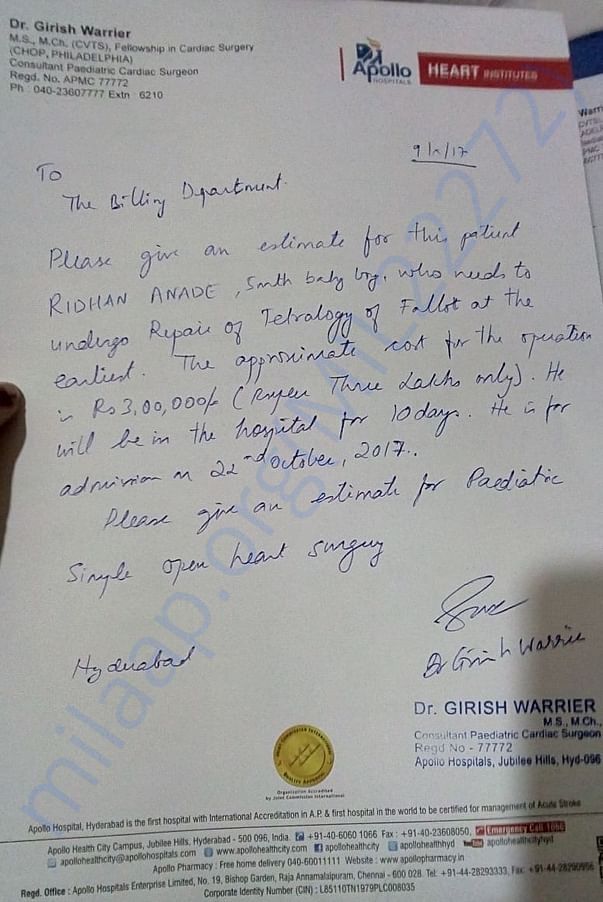 Dr. Girish Warrier
M.S., M.Ch. (CVTS), Fellowship in Cardiac Surgery
(CHOP, PHILADELPHIA)
Consultant Paediatric Cardiac Surgeon
Regd. No. APMC 77772
Ph : 040-23607777 Extn : 6210
Apollo
HOSPITALS
HEART INSTITUTES
9/x/17
To
The Billing Department.
Please give an estimate for this patient
RIDHAN ANADE, 5mth baby boy, who needs to
undergo Repair of Tetralogy of Fallot at the
earliest. The approximate cost for the operation
is Rs 3,00,000/- (Rupees Three Lakhs only). He
will be in the hospital for 10 days. He is for
admission on 22nd October, 2017.
Please give an estimate for Paediatic
Simple open heart surgery
Hyderabad
Dr Girish Warrier
Dr. GIRISH WARRIER
M.S., M.Ch.,
Consultant Paediatric Cardiac Surgeon
Regd No - 77772
Apollo Hospitals, Jubilee Hills, Hyd-096
Organization Accredited
by Joint Commission International
Apollo Hospital, Hyderabad is the first hospital with International Accreditation in A.P. & first hospital in the world to be certified for management of Acute Stroke
Apollo Health City Campus, Jubilee Hills, Hyderabad - 500 096, India. +91-40-6060 1066 Fax : +91-40-23608050, Emergency Call 1066
apollohealthcity@apollohospitals.com www.apollohealthcity.com apollohealthcity apollohealthhyd You Tube apollohealthcityhyd
Apollo Pharmacy : Free home delivery 040-60011111 Website : www.apollopharmacy.in
Regd. Office : Apollo Hospitals Enterprise Limited, No. 19, Bishop Garden, Raja Annamalaipuram, Chennai - 600 028. Tel: +91-44-28293333, Fax: +91-44-28290956
Corporate Identity Number (CIN) : L85110TN1979PLC008035